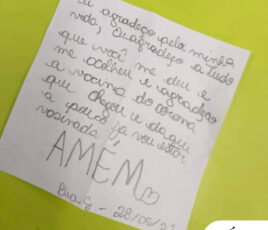 eu agradeço pela minha
vida, eu agradeço a tudo
que você me deu e
me acolheu e agradeço
a vacina do corona
que chegou e daqui
a pouco ja vou estar
vacinada
AMÉM♡
28/05/21